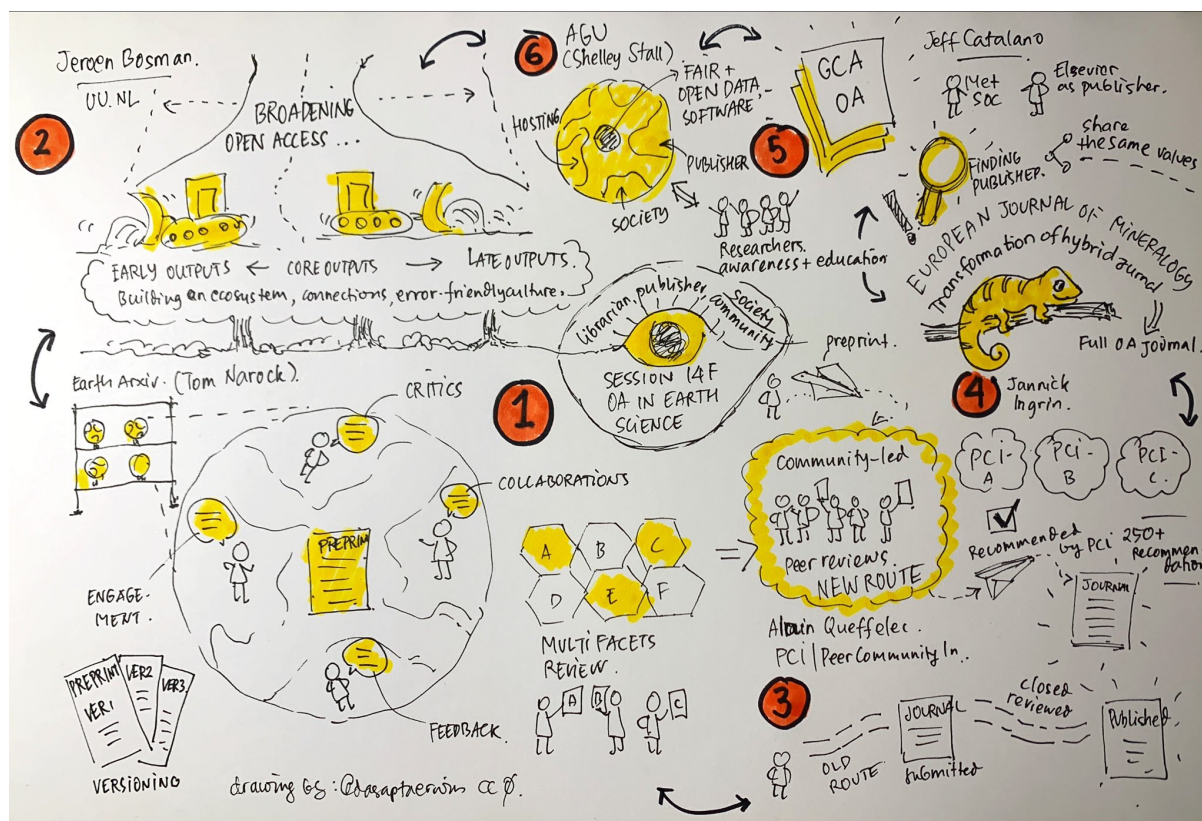 Jeroen Bosman.
UU.NL
2
BROADENING
OPEN ACCESS ...
EARLY OUTPUTS ← CORE OUTPUTS → LATE OUTPUTS.
Building an ecosystem, connections, error-friendly culture.
6
AGU
(Shelley Stall)
FAIR +
OPEN DATA,
SOFTWARE,
HOSTING
PUBLISHER
SOCIETY
Researchers.
awareness + education
5
GCA
OA
Jeff Catalano
Met
Soc
Elsevier
as publisher.
FINDING
PUBLISHER.
share
the same values
EUROPEAN JOURNAL OF MINERALOGY
Transformation of hybrid
Full OA Journal.
4
Jannick
Ingrin.
librarian, publisher
society
community
SESSION 14F
OA IN EARTH
SCIENCE
1
preprint.
Earth Arxiv. (Tom Narock).
CRITICS
COLLABORATIONS
PREPRINT
ENGAGE-
MENT.
FEEDBACK.
PREPRINT
VER1
VER2
VER3
VERSIONING
A
B
C
D
E
F
MULTI FACETS
REVIEW.
A
B
C
=>
Community-led
peer reviews.
NEW ROUTE
Alain Queffelec.
PCI | Peer Community In..
PCI-
A
PCI-
B
PCI-
C.
Recommended
by PCI
250+
Recommen
dation
JOURNAL
3
OLD
ROUTE
JOURNAL
submitted
closed
reviewed
Published
drawing by: CC Ø.